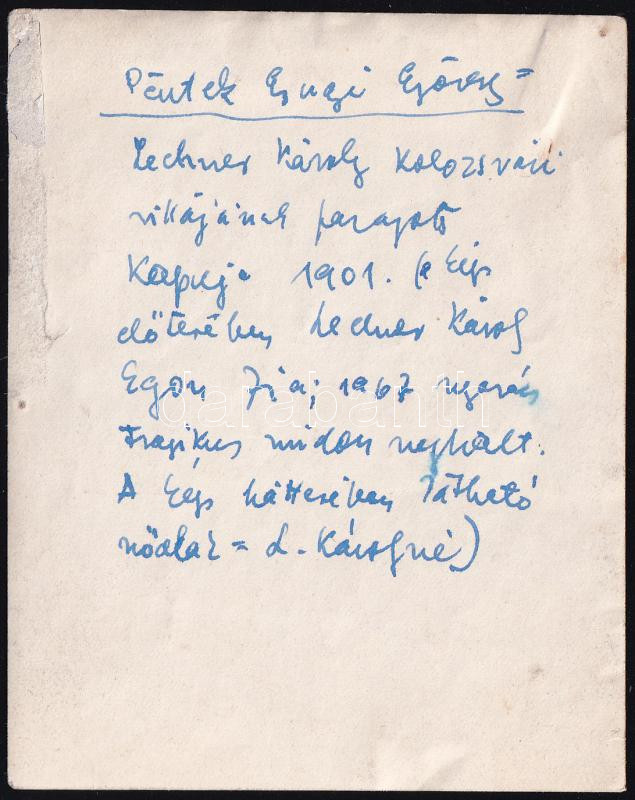 Péntek Gyugi György =
Lechner Károly Kolozsvári
villájának faragott
Kapuja 1901. (a kép
előterében Lechner Károly
Egon fia; 1967 nyarán
tragikus módon meghalt.
A kép hátterében látható
nőalak = L. Károlyné)
darabanth